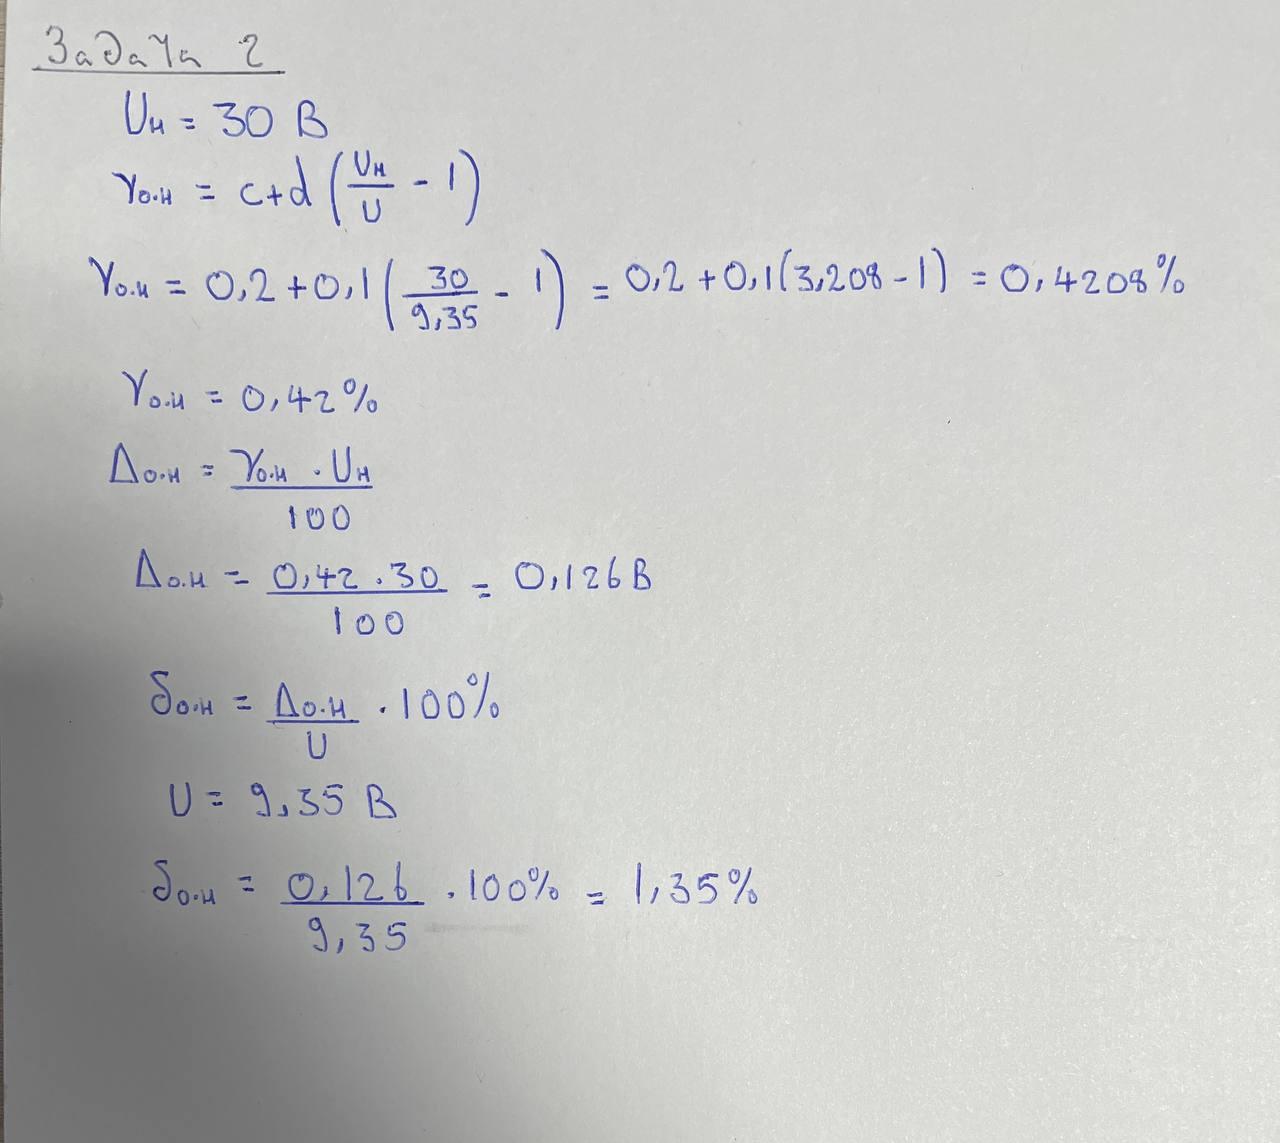 Задача 2
Uн = 30 В
γо.н = c+d (Uн/U - 1)
γо.н = 0,2+0,1(30/9,35 - 1) = 0,2+0,1(3,208-1) = 0,4208%
γо.н = 0,42%
Δо.н = γо.н · Uн/100
Δо.н = 0,42 · 30/100 = 0,126 В
δо.н = Δо.н/U · 100%
U = 9,35 В
δо.н = 0,126/9,35 · 100% = 1,35%